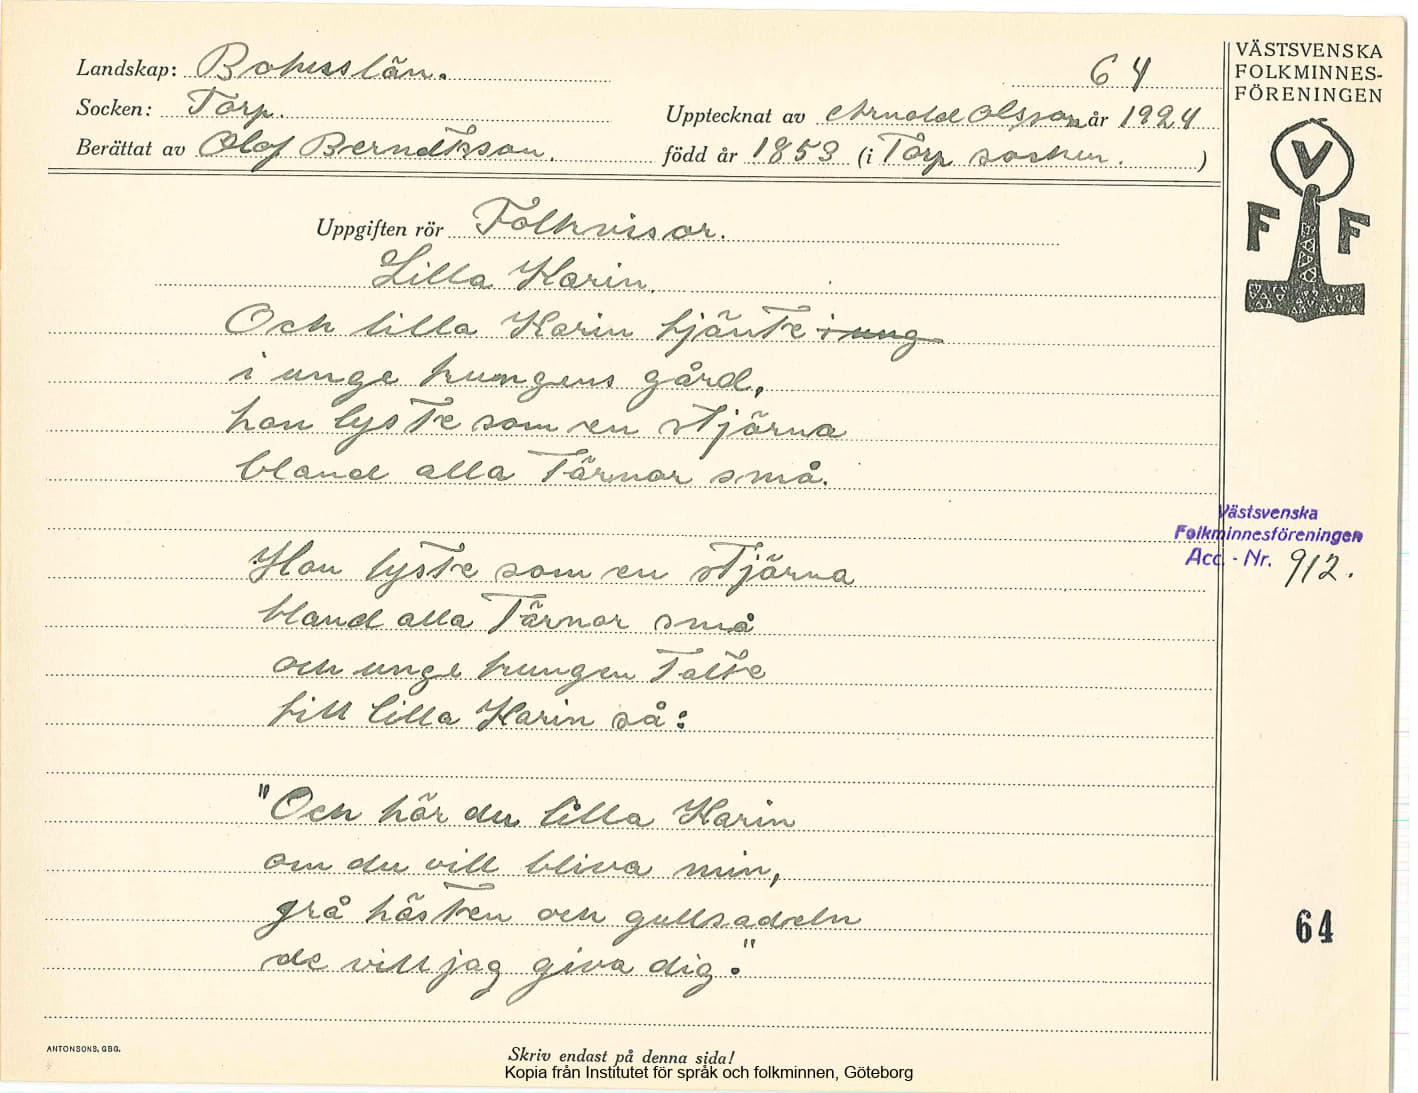 Landskap: Bohusslän.
64
Socken: Torp.
Upptecknat av Arnold Olsson år 1924
Berättat av Olof Berndtsson.
född år 1853 (i Torp socken. )
Uppgiften rör Folkvisor.
Lilla Karin.
Och lilla Karin tjänte i ung
i unge kungens gård,
hon lyste som en stjärna
bland alla tärnor små.
Hon lyste som en stjärna
bland alla tärnor små
och unge kungen talte
till lilla Karin så:
"Och hör du lilla Karin
om du vill bliva min,
grå hästen och gullsadeln
de vill jag giva dig."
ANTONSONS, GBG.
Skriv endast på denna sida!
Kopia från Institutet för språk och folkminnen, Göteborg
VÄSTSVENSKA
FOLKMINNES-
FÖRENINGEN
V
F F
Västsvenska
Folkminnesföreningen
Acc. - Nr. 912.
64